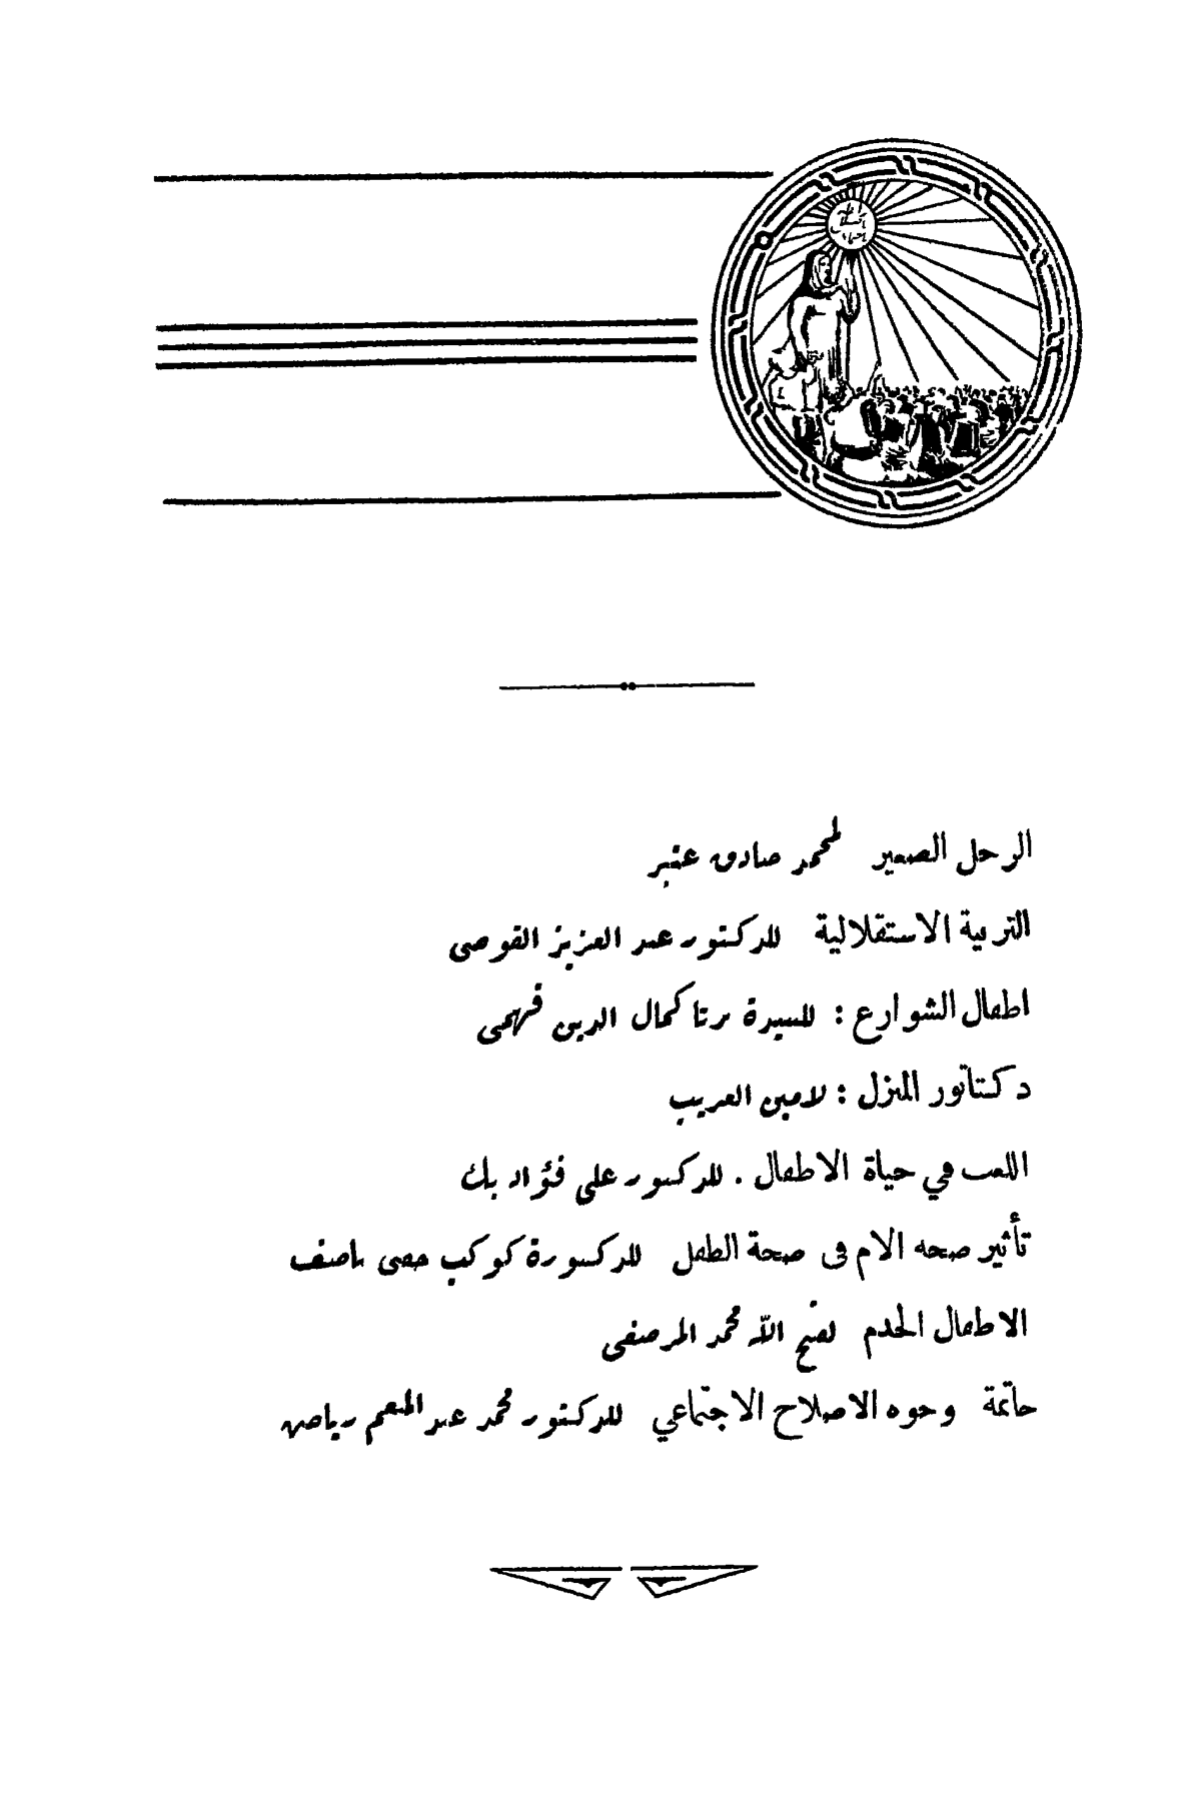 الرجل الصغير لمحمد صادق عنبر
التربية الاستقلالية للدكتور عبد العزيز القوصى
اطفال الشوارع : للسيدة برتا كمال الدين فهمى
دكتاتور المنزل : لامين الغريب
اللعب في حياة الاطفال . للدكتور على فؤاد بك
تأثير صحة الام فى صحة الطفل للدكتورة كوكب حفنى ناصف
الاطفال الخدم لفتح الله محمد المرصفى
خاتمة وجوه الاصلاح الاجتماعي للدكتور محمد عبد المنعم رياض